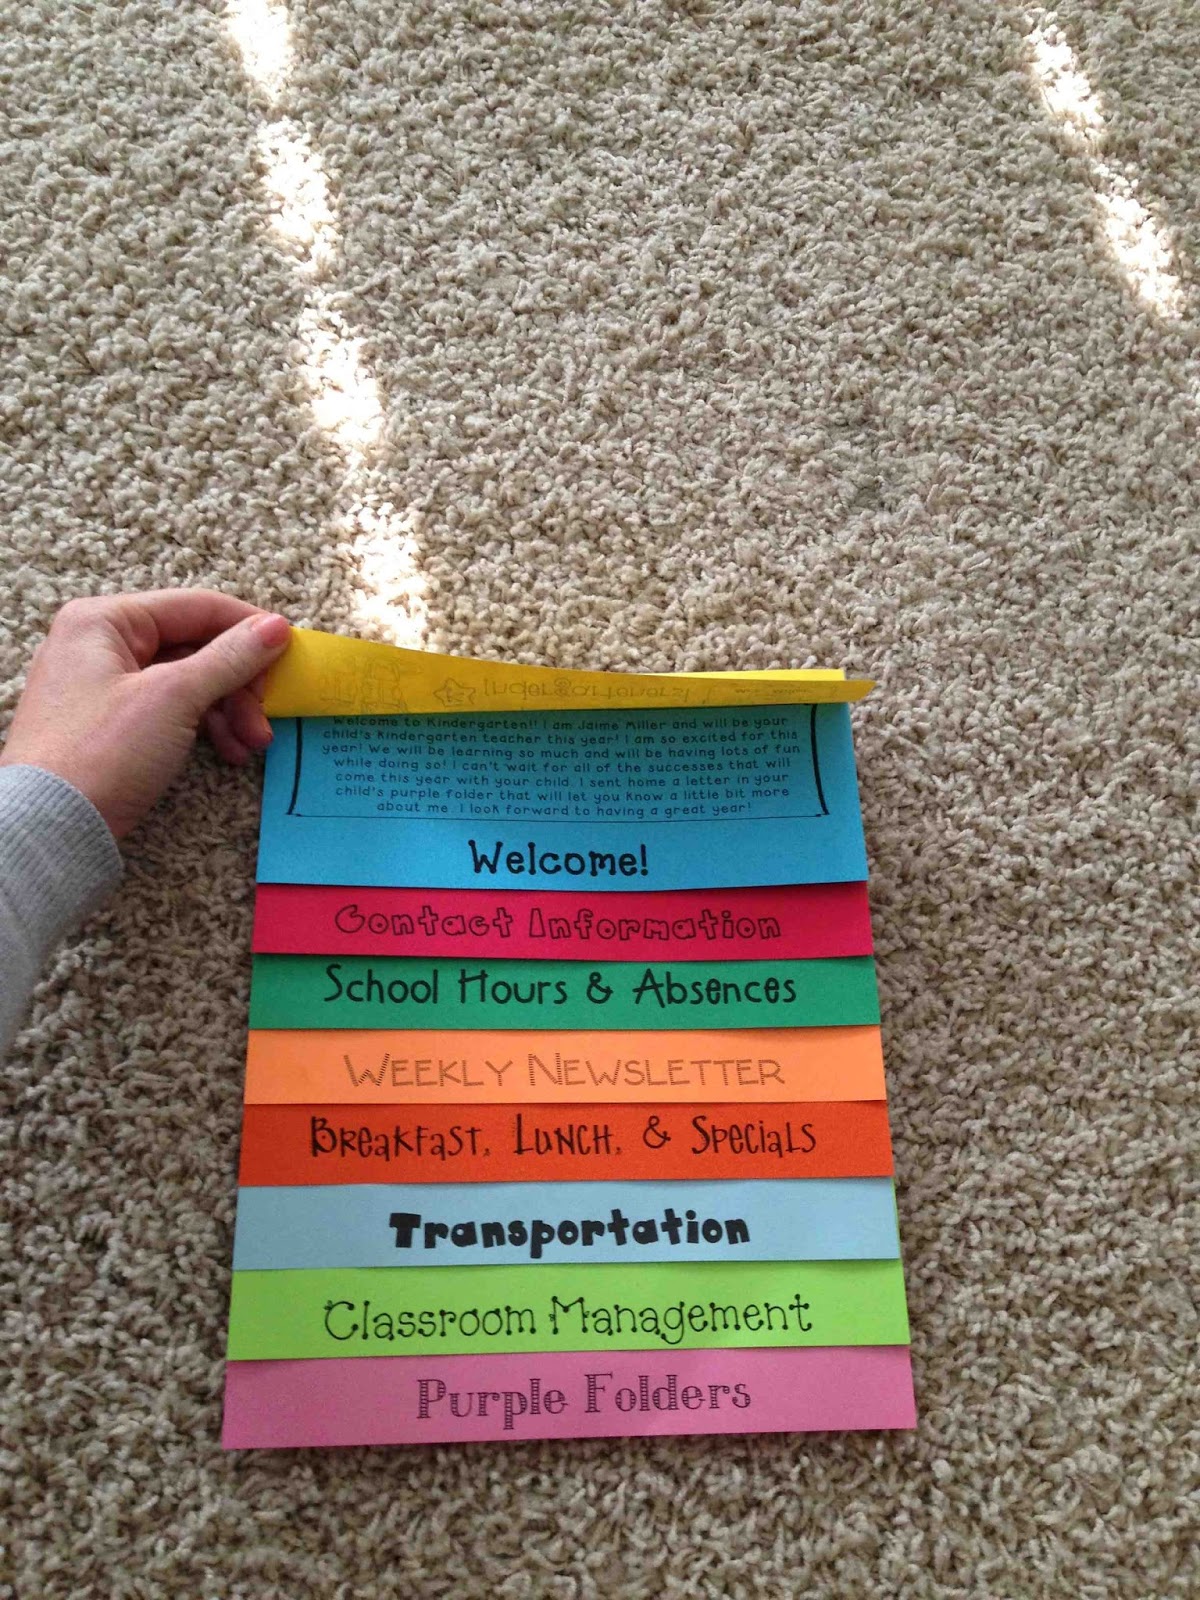 Kindergarten
Welcome to Kindergarten!! I am Jaime Miller and will be your
child's Kindergarten teacher this year! I am so excited for this
year! We will be learning so much and will be having lots of fun
while doing so! I can't wait for all of the successes that will
come this year with your child. I sent home a letter in your
child's purple folder that will let you know a little bit more
about me. I look forward to having a great year!
Welcome!
Contact Information
School Hours & Absences
Weekly Newsletter
Breakfast, Lunch, & Specials
Transportation
Classroom Management
Purple Folders